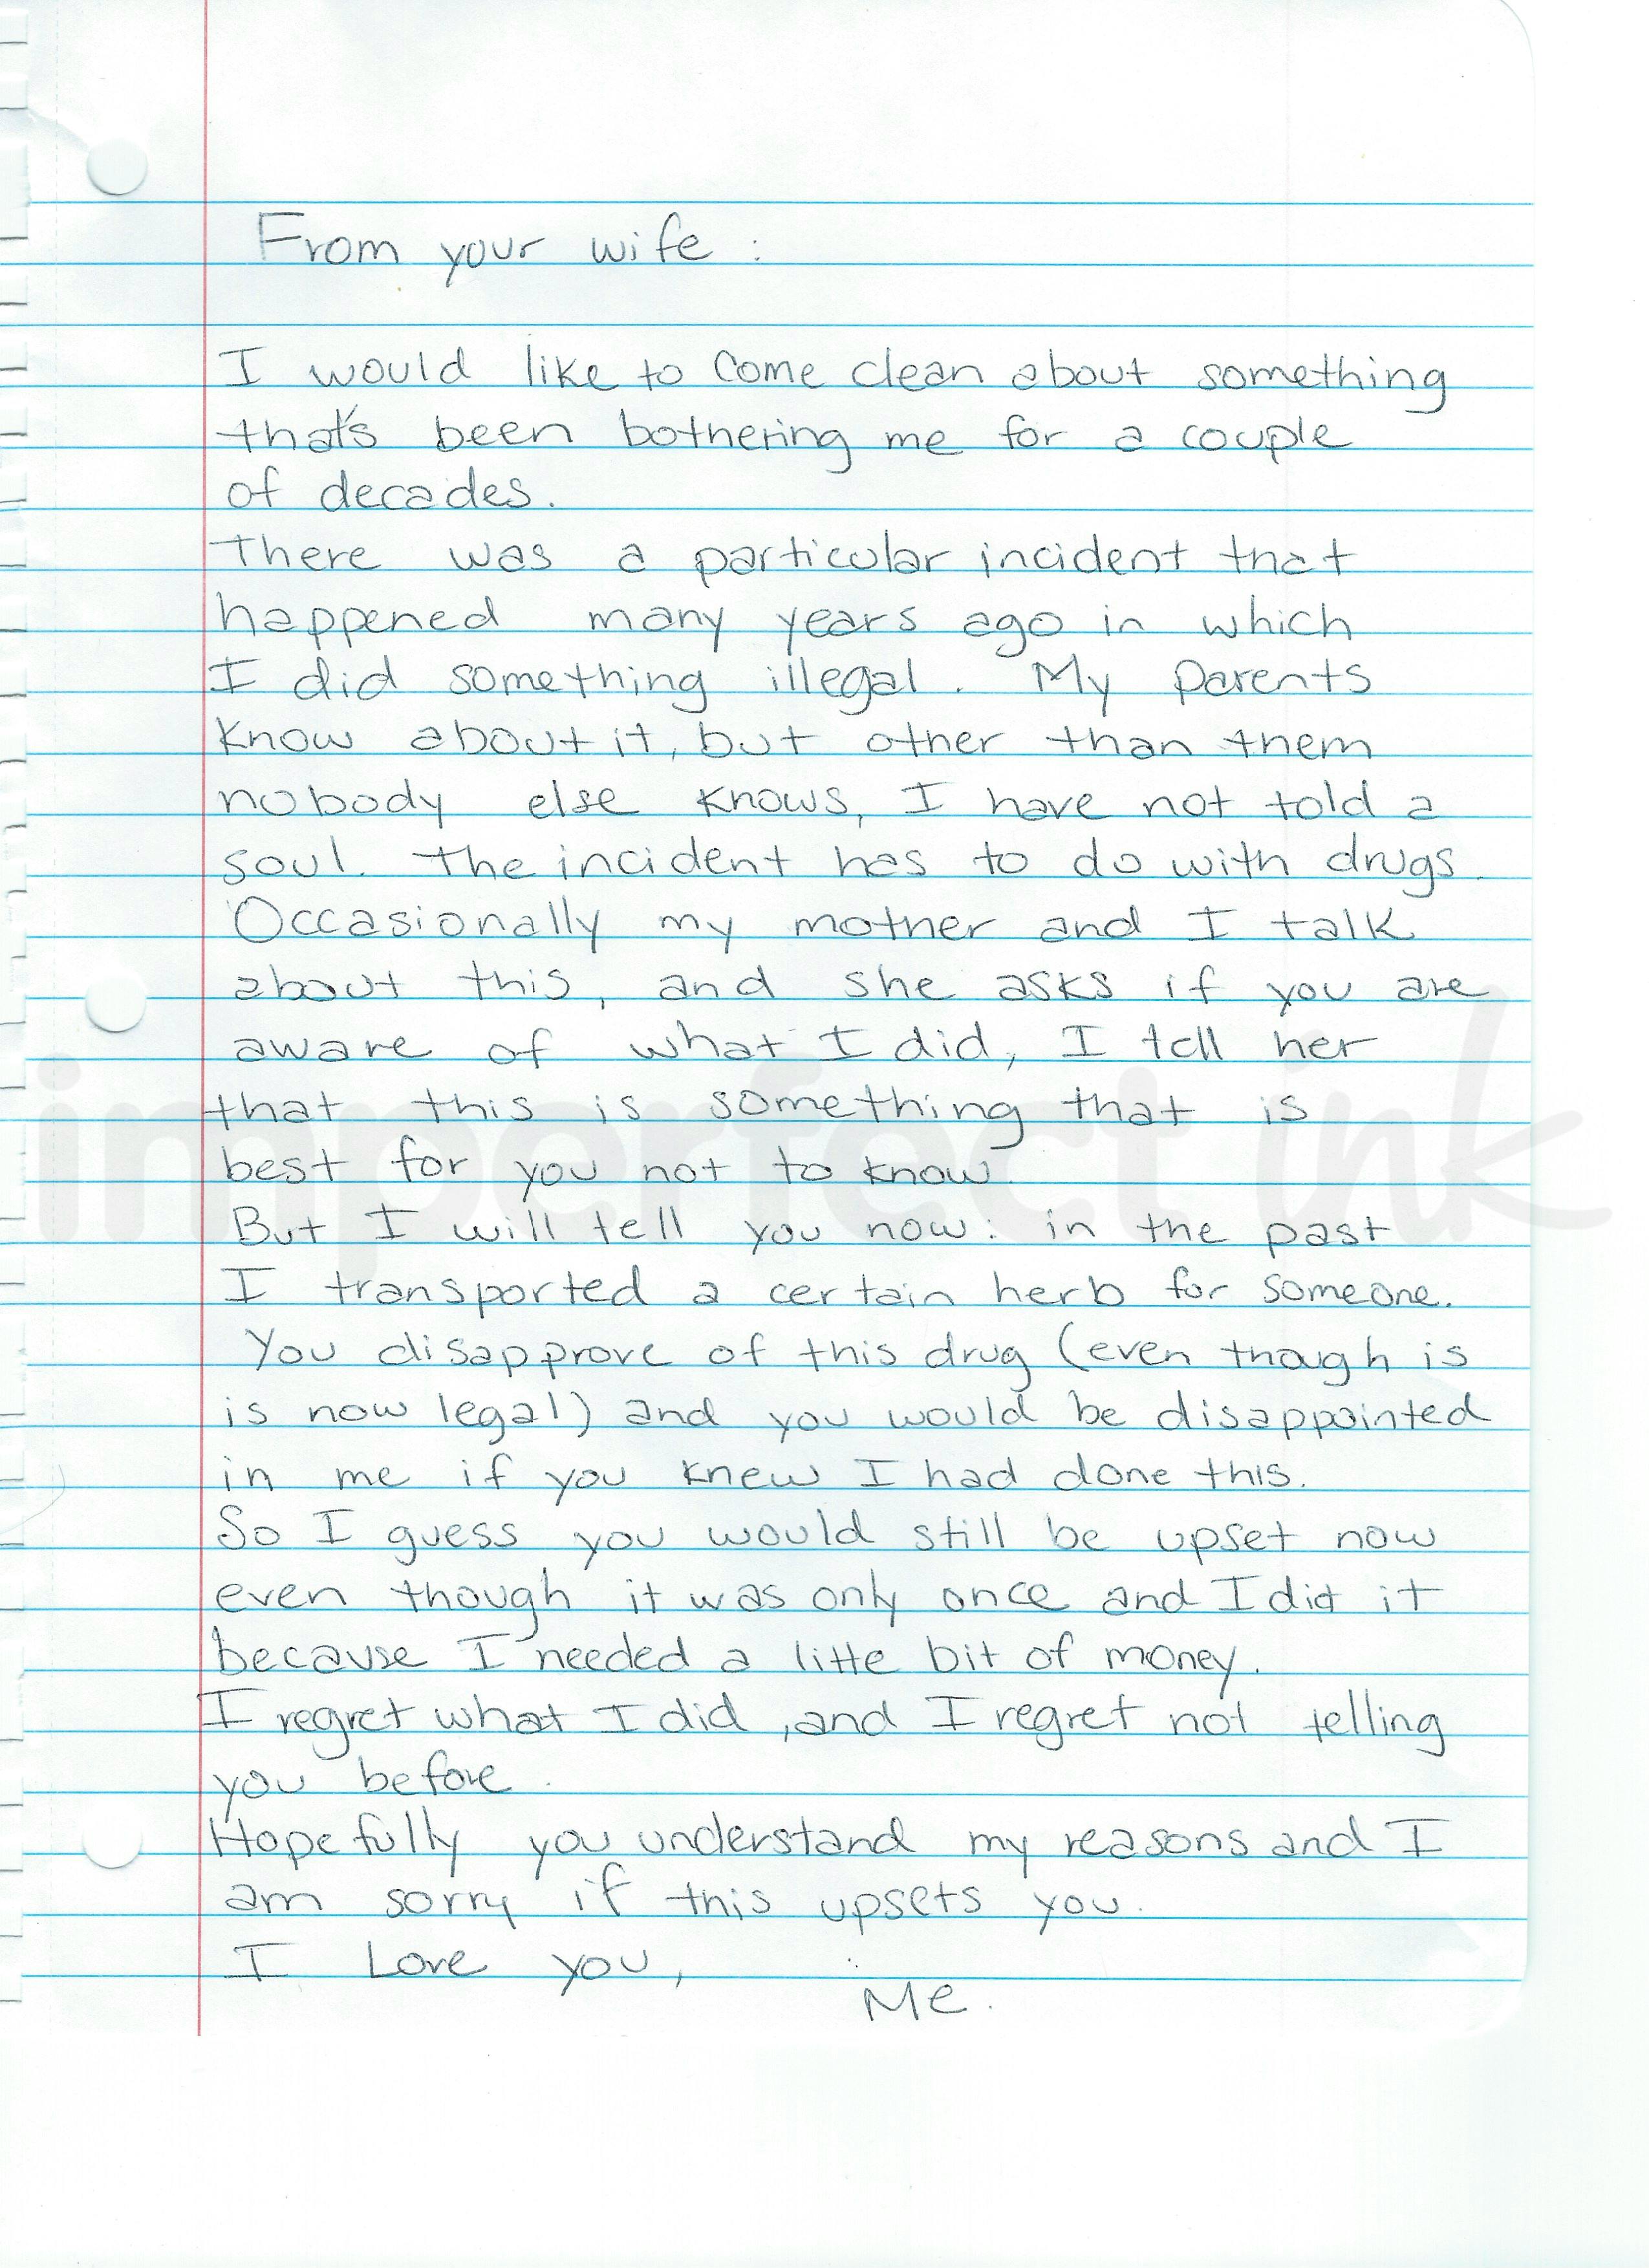 From your wife :
I would like to come clean about something
that's been bothering me for a couple
of decades.
There was a particular incident that
happened many years ago in which
I did something illegal. My parents
know about it, but other than them
nobody else knows, I have not told a
soul. The incident has to do with drugs.
Occasionally my mother and I talk
about this, and she asks if you are
aware of what I did, I tell her
that this is something that is
best for you not to know.
But I will tell you now: in the past
I transported a certain herb for someone.
You disapprove of this drug (even though is
is now legal) and you would be disappointed
in me if you knew I had done this.
So I guess you would still be upset now
even though it was only once and I did it
because I needed a little bit of money.
I regret what I did, and I regret not telling
you before.
Hopefully you understand my reasons and I
am sorry if this upsets you.
I Love you,
Me.
imperfect ink